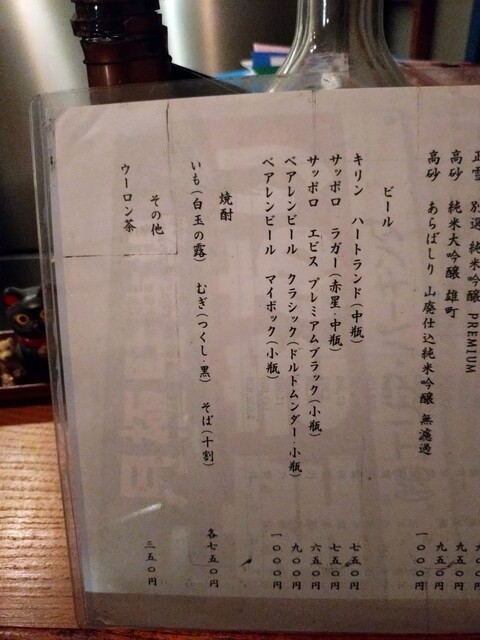 正雪 別選 純米吟醸 PREMIUM
高砂 純米大吟醸 雄町 九五〇円
高砂 あらばしり 山廃仕込純米吟醸 無濾過 一〇〇〇円
ビール
キリン ハートランド(中瓶) 七五〇円
サッポロ ラガー(赤星・中瓶) 七五〇円
サッポロ エビス プレミアムブラック(小瓶) 六五〇円
ベアレンビール クラシック(ドルトムンダー・小瓶) 九〇〇円
ベアレンビール マイボック(小瓶) 一〇〇〇円
焼酎
いも(白玉の露) むぎ(つくし・黒) そば(十割) 各七五〇円
その他
ウーロン茶 三五〇円